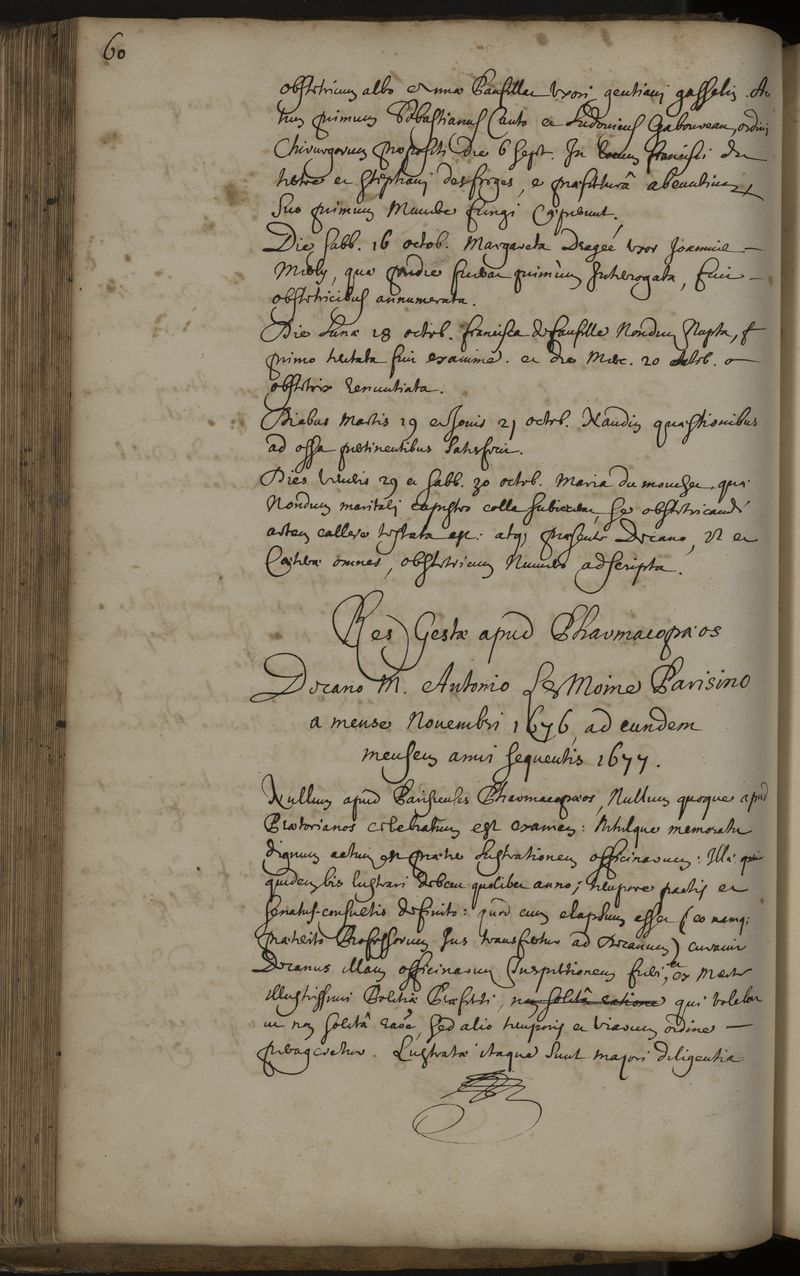 60
obstetricum albo Uxori gentiani gasselin.
tum primum Sebastianus Cants et Ludovicus Gaboureau, ordinis
Chirurgorum propositi die 6 Sept. In Locum francisci du
tertre et stephani desforges, e praefecturâ abeuntium
suo primum munere fungi
Die sabb. 16 octob. Margareta Dragée uxor Joannis
quae pridie fuerat primùm Interrogata, fuit
obstetricibus annumerata.
Die Lunae 18 octob. francisca Nondum Nupta,
primo tentata fuit examine. et die Merc. 20 octob.
obstetrix renuntiata.
Diebus Martis 19 et Jovis 21 octob. Naudin quaestionibus
ad ossa pertinentibus satisfecit.
Dies Veneris 29 et sabb. 30 octob. Maria du
Nondum maritali capistro colla subiecerat, se obstetricandi
artem callere testata est: atq; praesente Decano, ut et
Caeterae omnes, obstetricum Numero adscripta.
Res Gestae apud Pharmacopaeos
Decano M. Antonio Le Moine Parisino
a mense Novembri 1676, ad eundem
mensem anni sequentis 1677.
Nullum apud Parisienses Pharmacopaeos, Nullum quoque apud
Praetorianos celebratum est examen: Nihilque memoratu
dignum actum est praeter Lustrationem officinarum: Illae
quidem bis lustrari debent quolibet anno, tempore pactis et
senatus-consultis definito: quod cum elapsum esset (eo namq;
praeterito Professorum Jus transfertur ad Decanum) curavit
Decanus illam officinarum Inspectionem fieri, et ex
illustrissimi Politiae Praefecti, non solitâ ratione qui volebat
ut non solitâ raoe, sed alio temporis et viarum ordine
perageretur. Lustratae itaque sunt majori diligentia